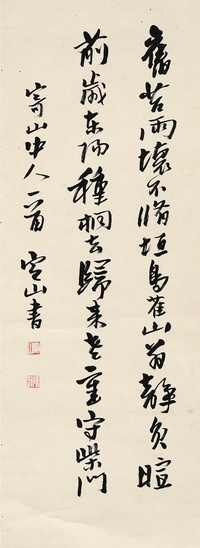 舊苦雨壞不脩垣鳥雀山翁靜負暄
前歲東種桐去歸來老重守柴門
寄山中人一首 山書